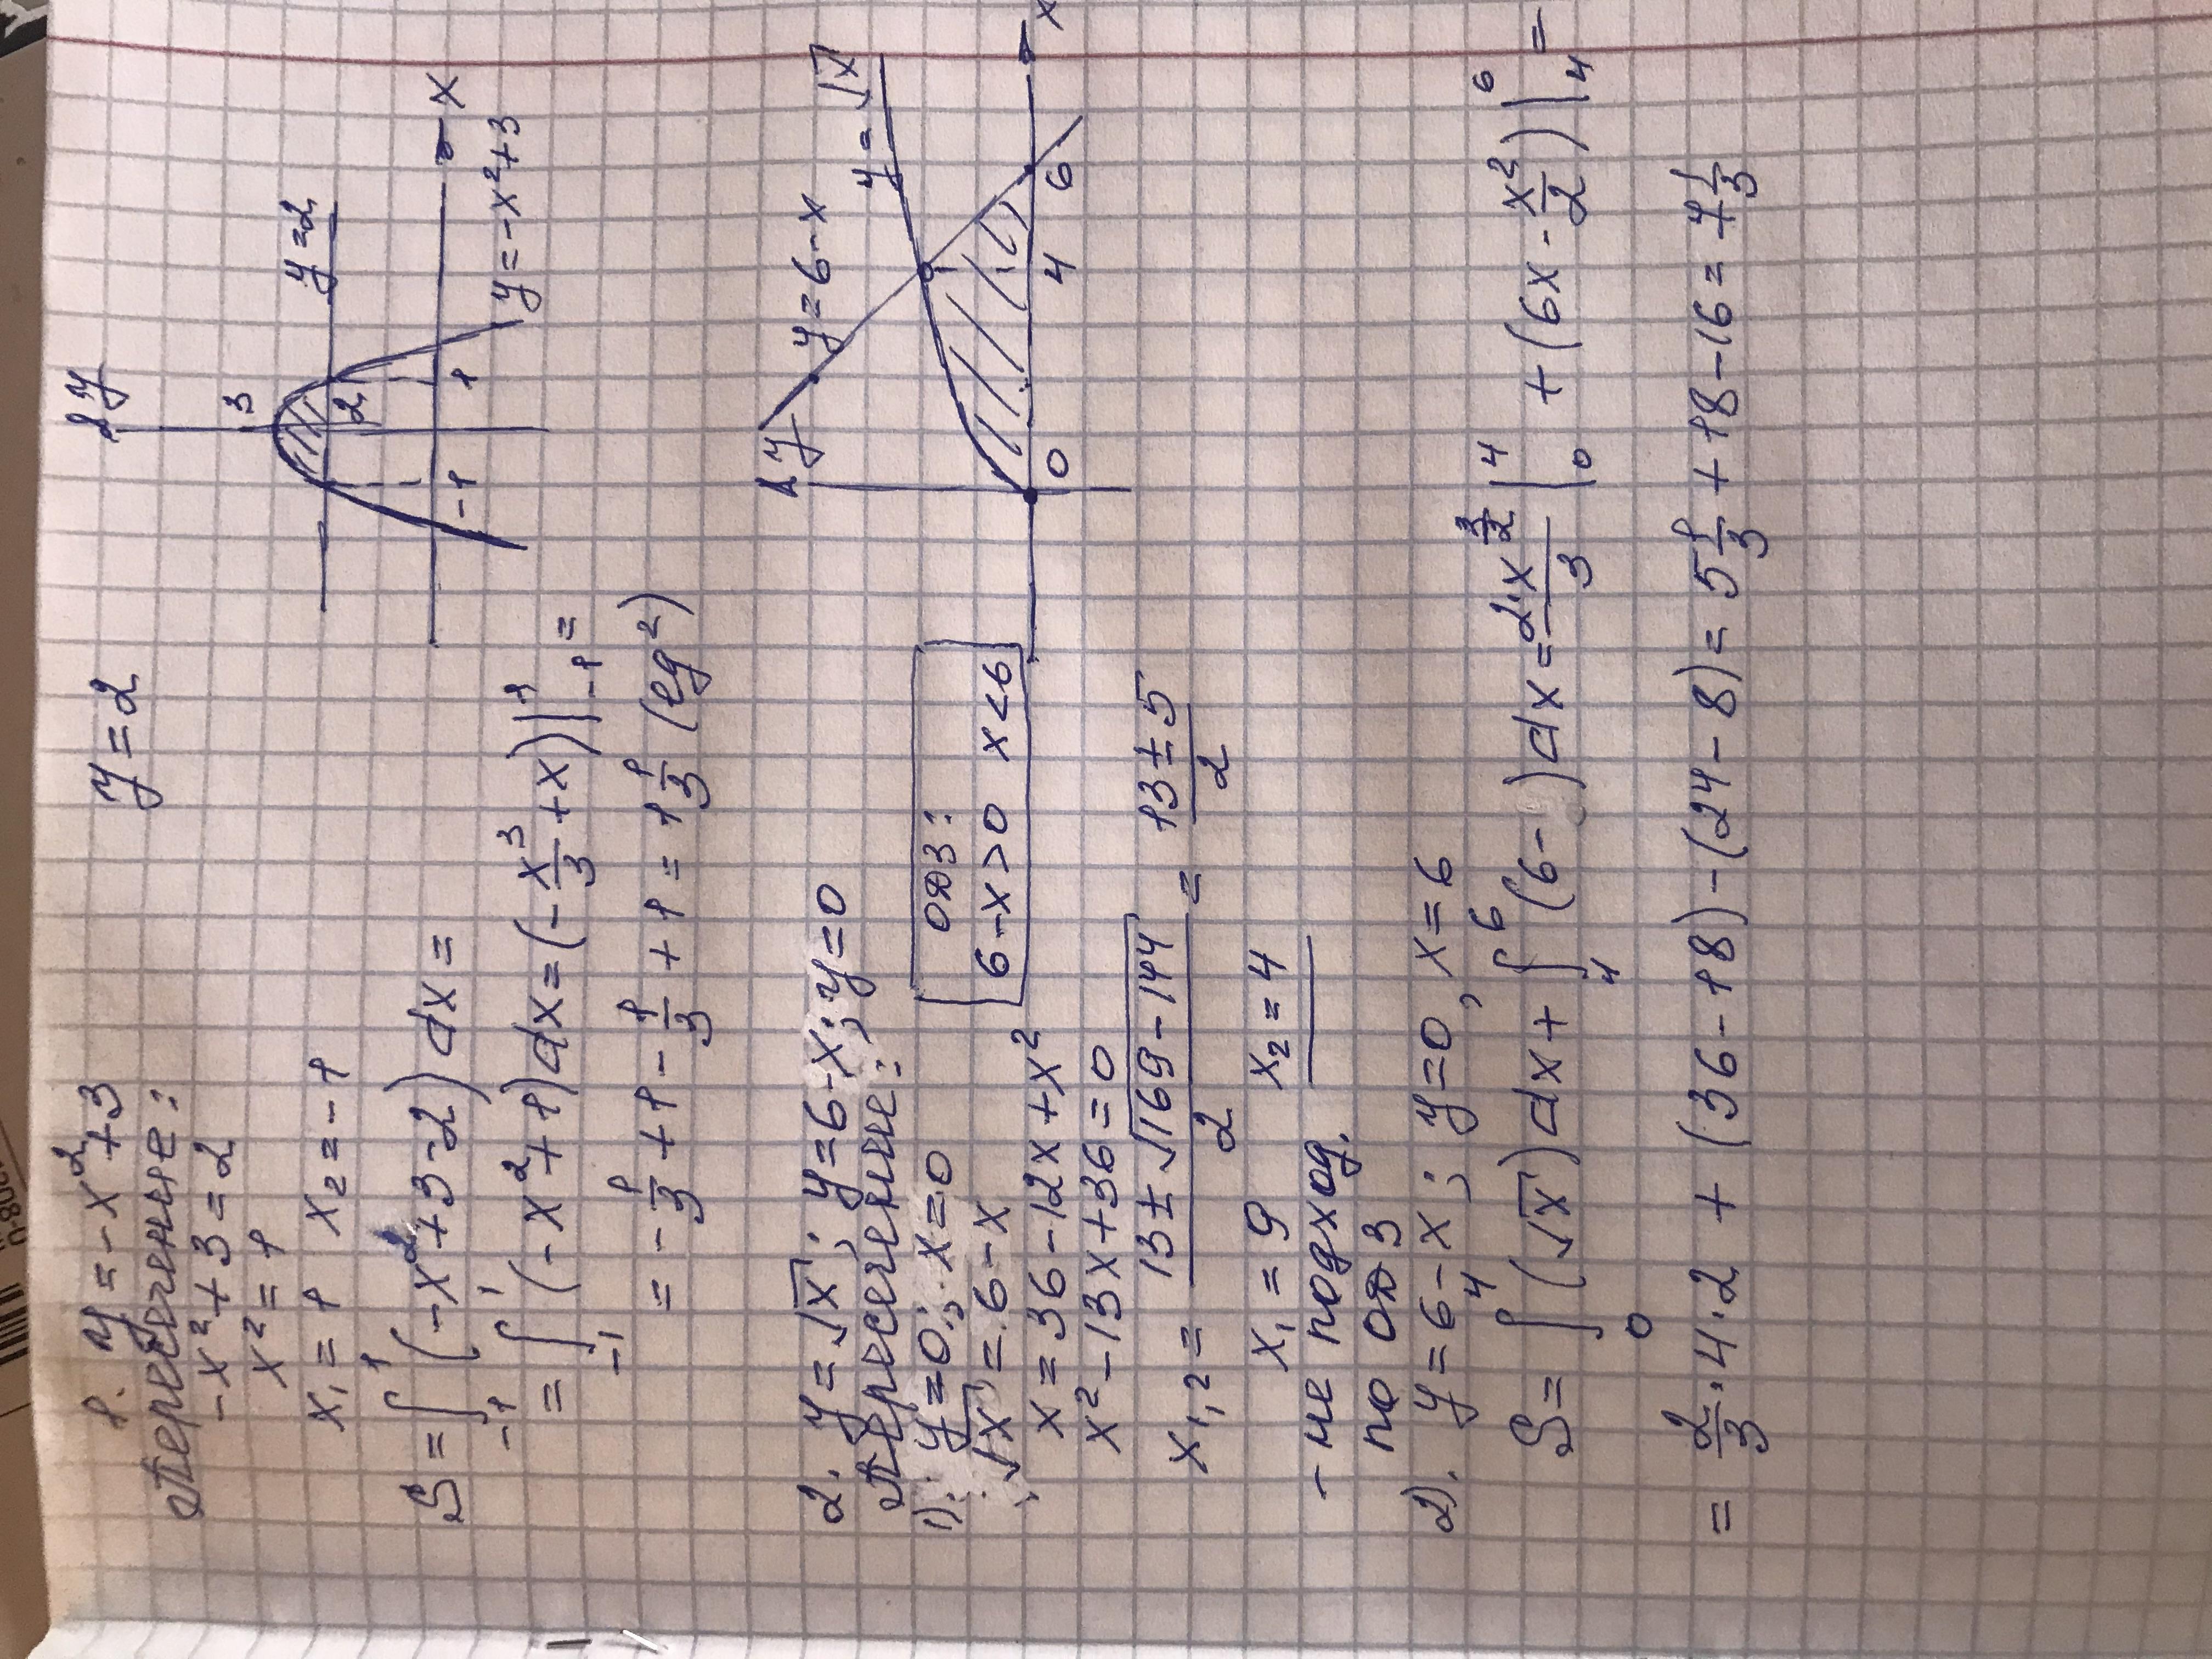 1. y = -x²+3        y = 2
Пересечение:
-x²+3=2
x²=1
x₁=1   x₂=-1
S = ∫₋₁¹ (-x²+3-2) dx =
= ∫₋₁¹ (-x²+1)dx = (-x³/3 + x)|₋₁¹ =
= -1/3 + 1 - 1/3 + 1 = 1 1/3 (ед²)
y
3
2
y=2
-1
1
x
y=-x²+3
2. y=√x; y=6-x; y=0
Пересечение:
1). y=0; x=0
√x = 6-x
ОДЗ:
6-x>0   x<6
x = 36-12x+x²
x²-13x+36=0
x₁,₂ = (13±√(169-144))/2 = (13±5)/2
x₁=9        x₂=4
- не подход.
по ОДЗ
y
y=6-x
y=√x
0
4
6
x
2). y=6-x; y=0, x=6
S = ∫₀⁴ (√x)dx + ∫₄⁶ (6- )dx = (2·x^(3/2))/3 |₀⁴ + (6x - x²/2)|₄⁶ =
= 2/3·4·2 + (36-18)-(24-8) = 5 1/3 + 18-16 = 7 1/3